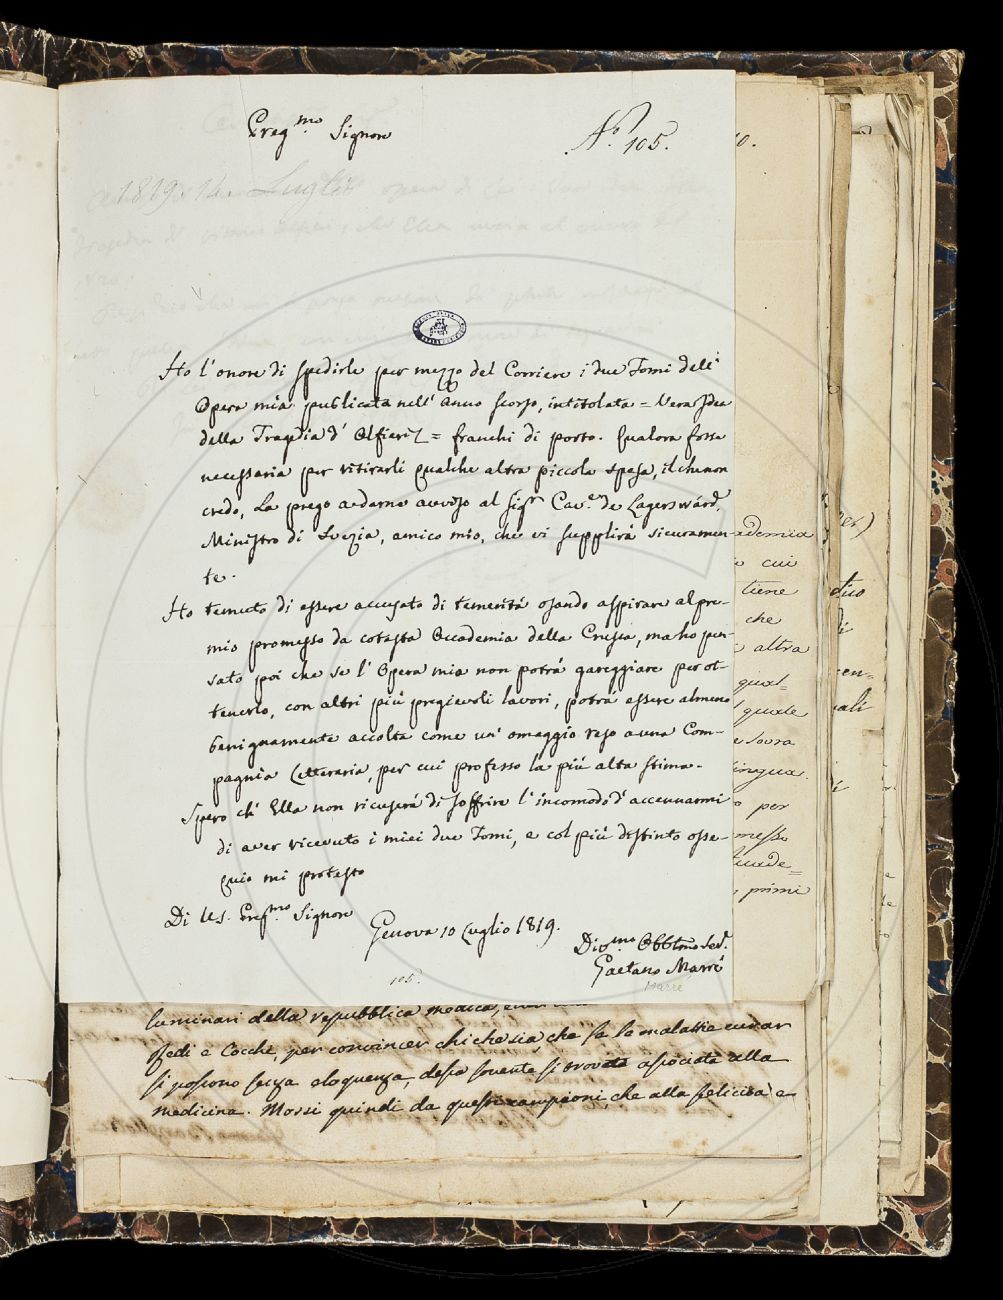 Preg.mo Signore
N.o 105.
1819. 14 Luglio
Ho l'onore di spedirle per mezzo del Corriere i due Tomi dell'
Opera mia publicata nell' anno scorso, intitolata = Vera Idea
della Tragedia d' Alfieri = franchi di porto. Qualora fosse
necessaria per ritirarli qualche altra piccola spesa, il che non
credo, La prego a darne avviso al Sig.r Cav.er de Lagerswärd,
Ministro di Svezia, amico mio, che vi supplirà sicuramen-
te.
Ho temuto di essere accusato di temerità osando aspirare al pre-
mio promesso da cotesta Accademia della Crusca, ma ho pen-
sato poi che se l' Opera mia non potrà gareggiare per ot-
tenerlo, con altri più pregievoli lavori, potrà essere almeno
benignamente accolta come un' omaggio reso a una Com-
pagnia Letteraria, per cui professo la più alta stima.
Spero ch' Ella non ricuserà di soffrire l'incomodo d' accennarmi
di aver ricevuto i miei due Tomi, e col più distinto osse-
quio mi protesto
Di U.S. Preg.mo Signore
Genova 10 Luglio 1819.
Div.mo Obblmo Ser.
Gaetano Marrè
Marrè
105.
luminari della repubblica medica,
Redi e Cocchi, per convincer chichesia, che se le malattie curar
si possono senza eloquenza, dessa sovente si trovata associata alla
medicina. Mossi quindi da questi campioni, che alla felicità e
10.
ademia
cui
tiene
che
altra
qual=
quale
e sovra
lingua.
o per
messo
quade=
primi
dico
di
cen=
uali